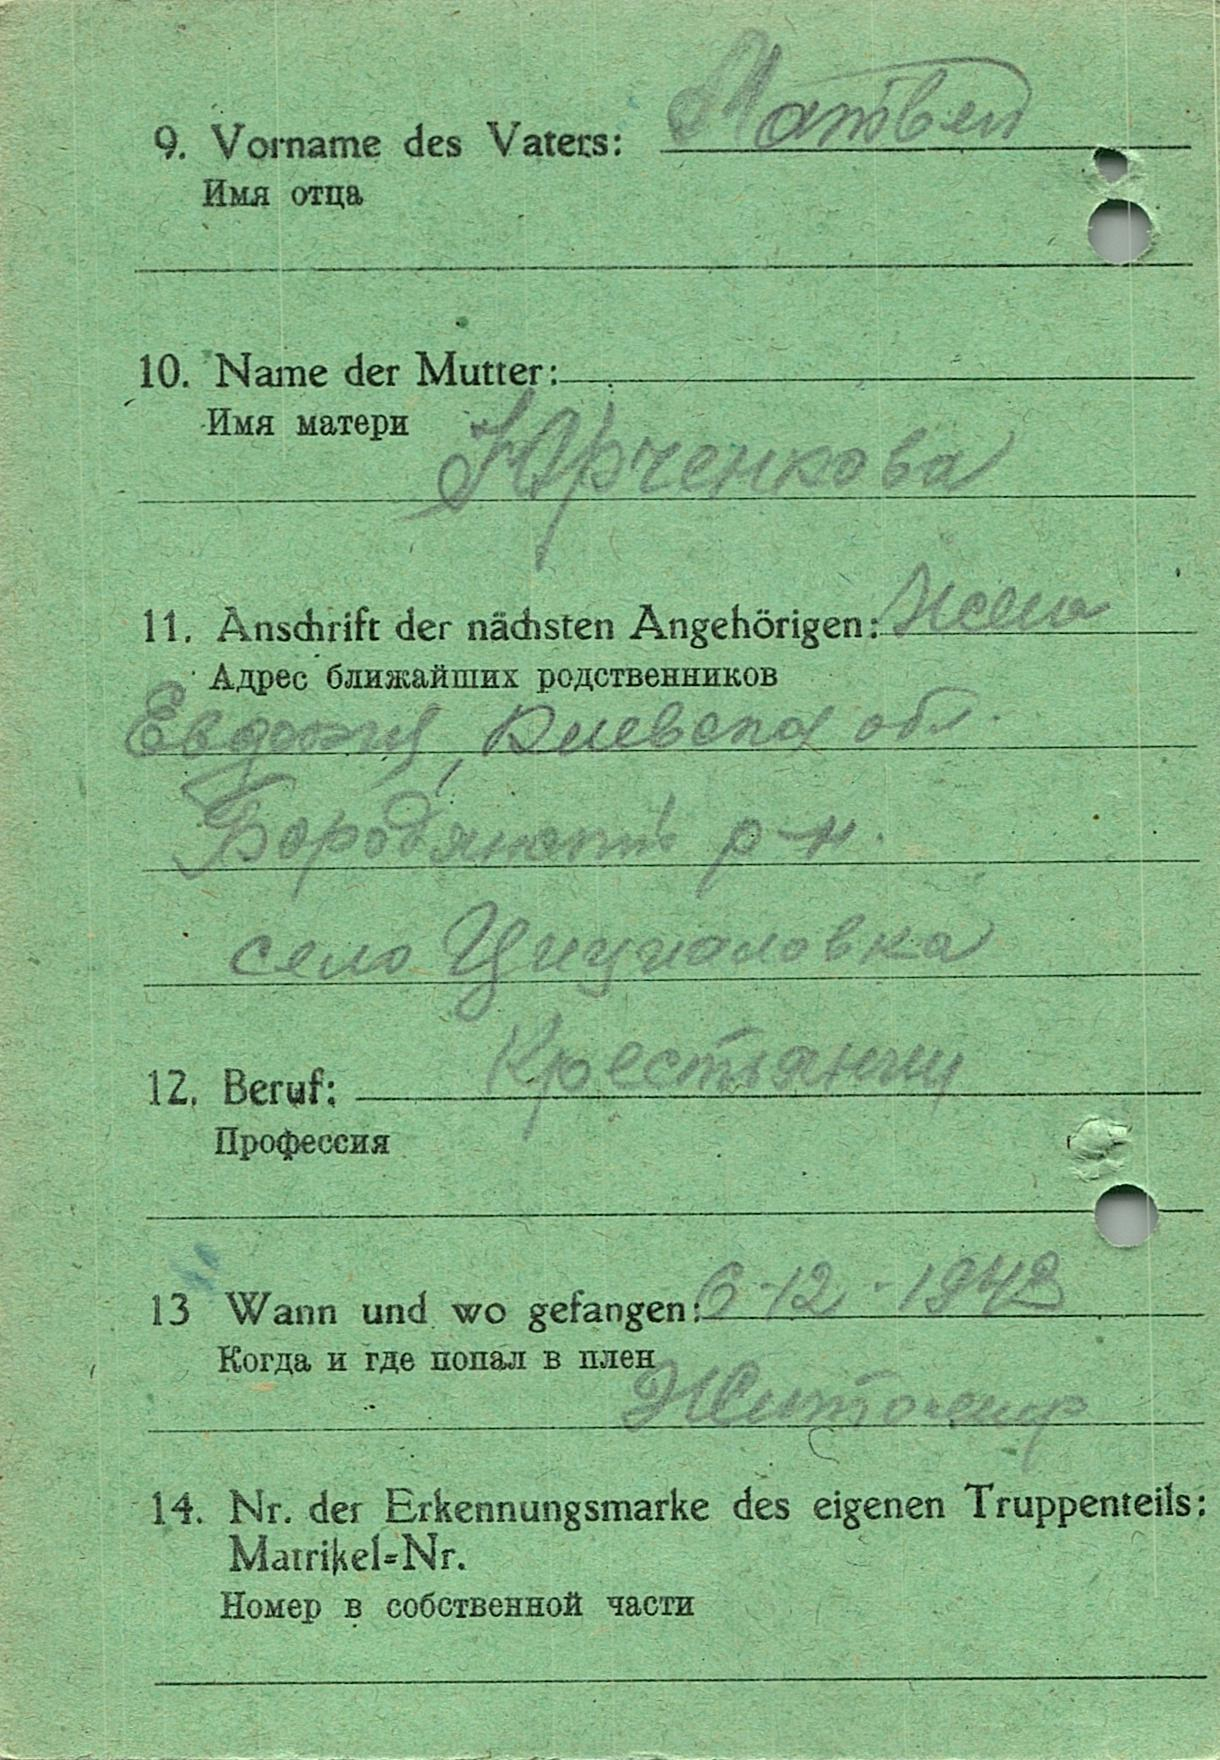 9. Vorname des Vaters: Матвей
Имя отца
10. Name der Mutter:
Имя матери Юрченкова
11. Anschrift der nächsten Angehörigen: Жена
Адрес ближайших родственников
Евдокия, Киевская обл.
Бородянский р-н.
село
12. Beruf: Крестьянин
Профессия
13 Wann und wo gefangen: 6-12-1943
Когда и где попал в плен
Житомир
14. Nr. der Erkennungsmarke des eigenen Truppenteils:
Matrikel-Nr.
Номер в собственной части